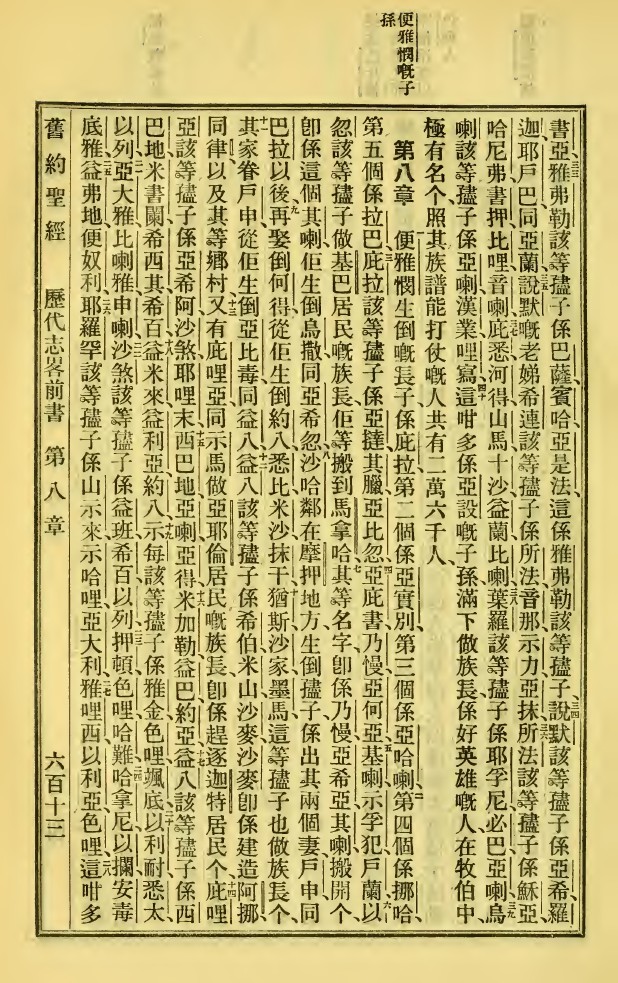 便雅憫嘅子
孫
書亞雅弗勒該等孻子係巴薩賓哈亞是法這係雅弗勒該等孻子說默該等孻子係亞希羅
迦耶戶巴同亞蘭說默嘅老娣希連該等孻子係所法音那示力亞抹所法該等孻子係穌亞
哈尼弗書押比哩音喇庇悉河得山馬十沙益蘭比喇葉羅該等孻子係耶孚尼必巴亞喇烏
喇該等孻子係亞喇漢業哩寫這咁多係亞設嘅子孫滿下做族長係好英雄嘅人在牧伯中
極有名个照其族譜能打仗嘅人共有二萬六千人
第八章 便雅憫生倒嘅長子係庇拉第二個係亞實別第三個係亞哈喇第四個係挪哈
第五個係拉巴庇拉該等孻子係亞撻其臘亞比忽亞庇書乃慢亞何亞基喇示孚犯戶蘭以
忽該等孻子做基巴居民嘅族長佢等搬到馬拿哈其等名字卽係乃慢亞希亞其喇搬開个
卽係這個其喇佢生倒烏撒同亞希忽沙哈鄰在摩押地方生倒孻子係出其兩個妻戶申同
巴拉以後再娶倒何得從佢生倒約八悉比米沙抹干猶斯沙家墨馬這等孻子也做族長个
其家眷戶申從佢生倒亞比毒同益八益八該等孻子係希伯米山沙麥沙麥卽係建造阿挪
同律以及其等鄉村又有庇哩亞同示馬做亞耶倫居民嘅族長卽係趕逐迦特居民个庇哩
亞該等孻子係亞希阿沙煞耶哩末西巴地亞喇亞得米加勒益巴約亞益八該等孻子係西
巴地米書闌希西其希百益米來益利亞約八示每該等孻子係雅金色哩颯底以利耐悉太
以列亞大雅比喇雅申喇沙煞該等孻子係益班希百以列押頓色哩哈難哈拿尼以攔安毒
底雅益弗地便奴利耶羅罕該等孻子係山示來示哈哩亞大利雅哩西以利亞色哩這咁多
舊約聖經 歷代志畧前書 第八章 六百十三